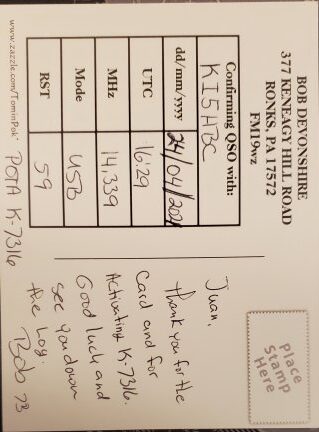 BOB DEVONSHIRE
377 KENEAGY HILL ROAD
RONKS, PA 17572
FM19wz
Confirming QSO with:
KI5HBC
dd/mm/yyyy
24/04/202
UTC
16:29
MHz
14.339
Mode
USB
RST
59
www.zazzle.com/TominPok*
POTA K-7316
Place
Stamp
Here
Juan,
Thank you for the
card and for
Activating K-7316.
Good luck and
see you down
the log.
Bob 73